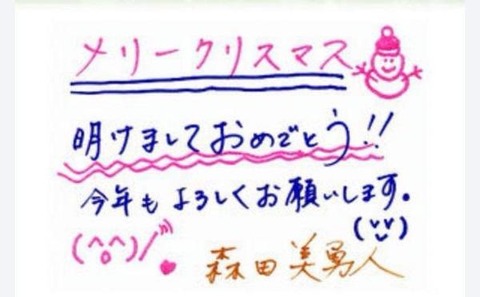 メリークリスマス
明けましておめでとう!!
今年もよろしくお願いします。
(^o^)/
森田美勇人